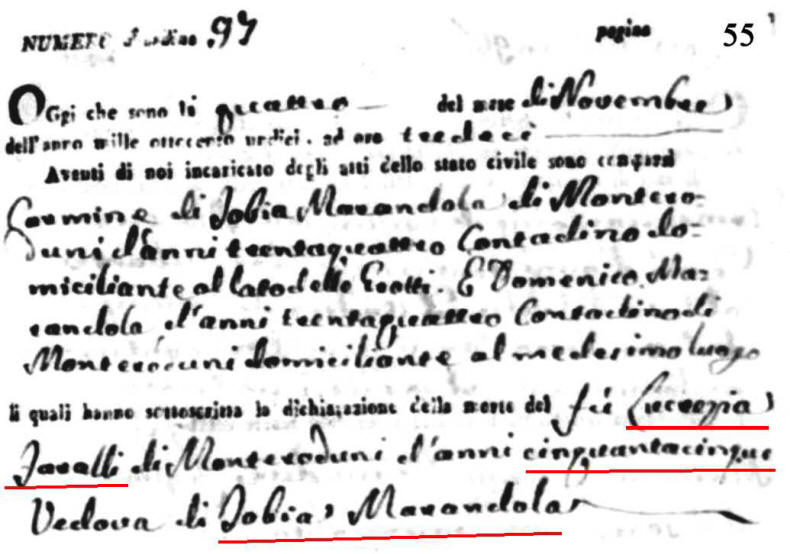 NUMERO d'ordine 97 pagina 55
Oggi che sono li quattro del mese di Novembre
dell'anno mille ottocento undici, ad ore tredeci
Avanti di noi incaricato degli atti dello stato civile sono comparsi
Carmine di Tobia Marandola di Montero=
duni d'anni trentaquattro Contadino do=
miciliante al lato delle Grotti. E Domenico Ma=
randola d'anni trentaquattro Contadino di
Monteroduni domiciliante al medesimo luogo
li quali hanno sottoscritta la dichiarazione della morte del fù Lucrezia
Javalli di Monteroduni d'anni cinquantacinque
Vedova di Tobia Marandola